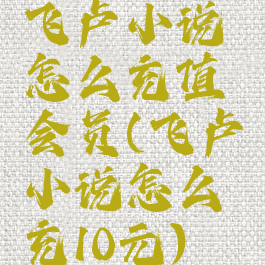 飞卢小说
怎么充值
会员(飞卢
小说怎么
充10元)